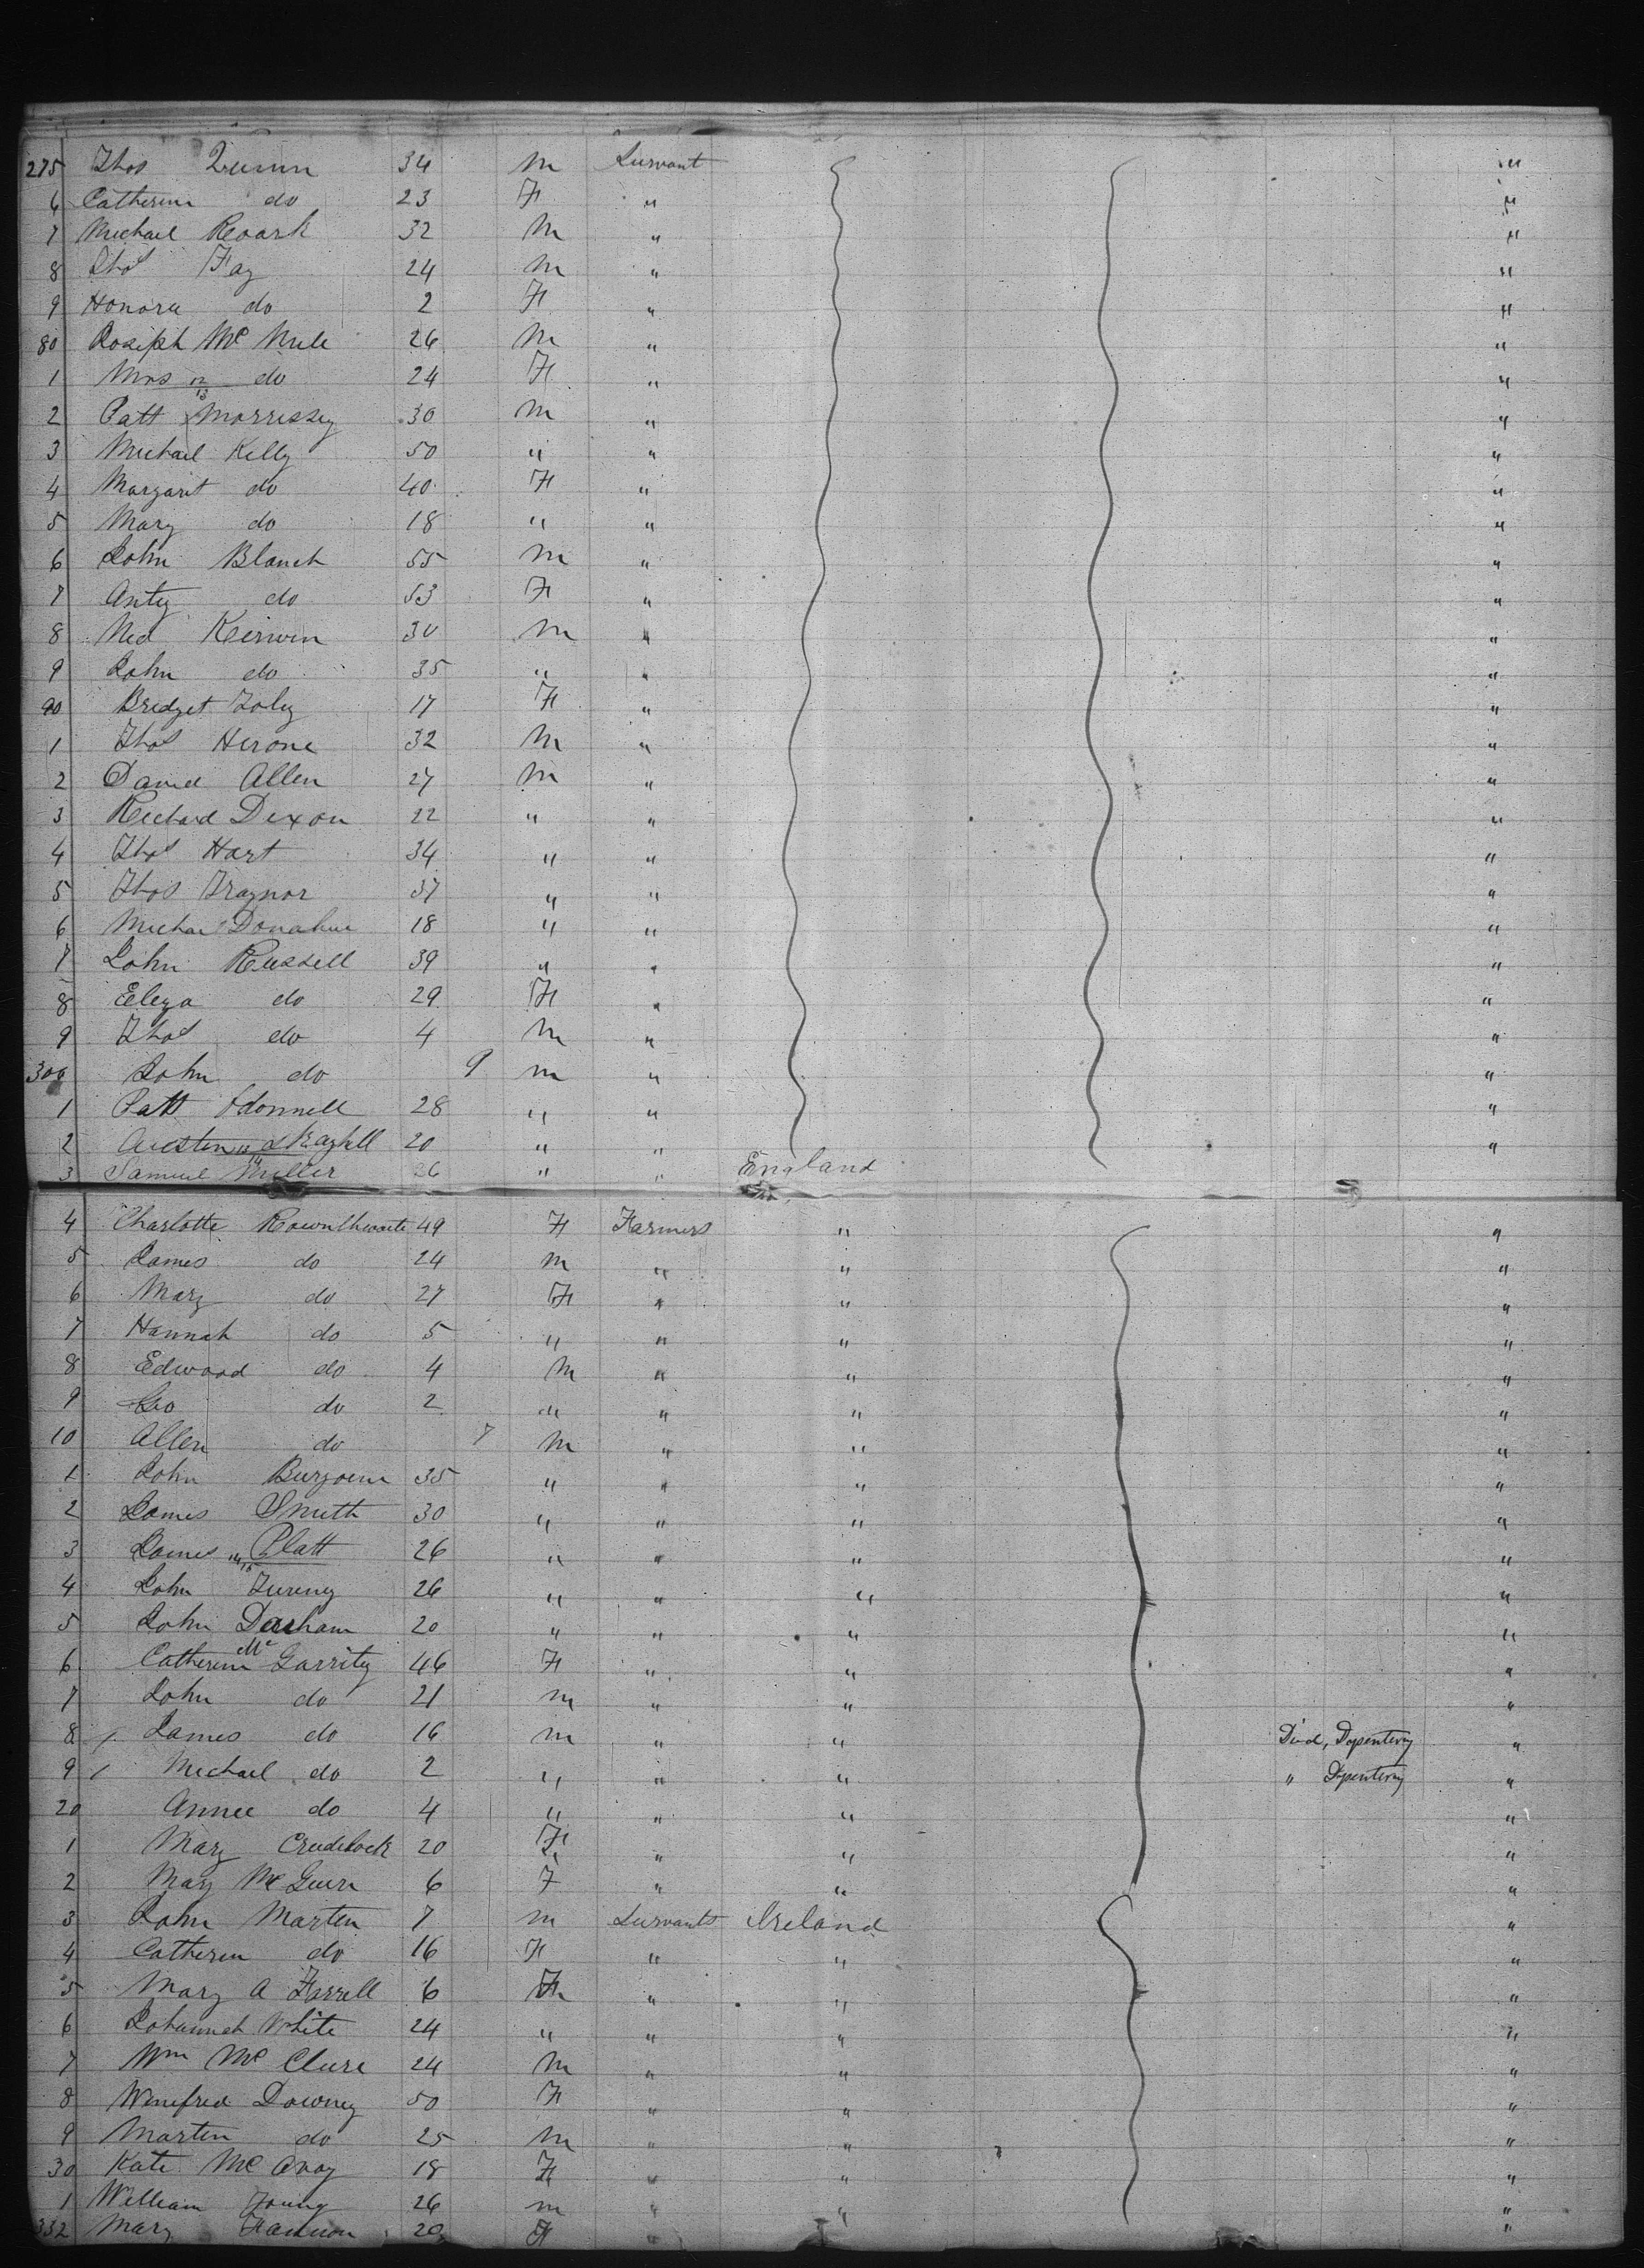 275 Thos Quinn 34 M Survant "
6 Catherin do 23 F " "
7 Michael Roark 32 M " "
8 Thos Fay 24 M " "
9 Honora do 2 F " "
80 Joseph Mc 26 M " "
1 Mrs do 24 F " "
2 Patt Morrissey 30 M " "
3 Michael Kelly 50 " " "
4 Margarit do 40 F " "
5 Mary do 18 " " "
6 John Blanch 55 M " "
7 Anty do 53 F " "
8 Ned Keirwin 30 M " "
9 John do 35 " " "
90 Bridget Foley 17 F " "
1 Thos Herone 32 M " "
2 David Allen 27 M " "
3 Richard Dixon 22 " " "
4 Thos Hart 34 " " "
5 Thos Traynor 37 " " "
6 Michael Donahue 18 " " "
7 John Russell 39 " " "
8 Eliza do 29 F " "
9 Thos do 4 M " "
300 John do 9 M " "
1 Patt Odonnell 28 " " "
2 Austin 20 " " "
3 Samuel Miller 26 " " England
4 Charlotte Rownthwaite 49 F Farmers " "
5 James do 24 M " " "
6 Mary do 27 F " " "
7 Hannah do 5 " " " "
8 Edward do 4 M " " "
9 Geo do 2 " " " "
10 Allen do 7 M " " "
1 John Burgoin 35 " " " "
2 James Smith 30 " " " "
3 James Platt 26 " " " "
4 John Tureny 26 " " " "
5 John Durham 20 " " " "
6 Catherin Mc Garrity 46 F " " "
7 John do 21 M " " "
8 / James do 16 M " " Died, Dysentery "
9 / Michael do 2 " " " " Dysentery "
20 Annie do 4 " " " "
1 Mary 20 F " " "
2 Mary Mc 6 F " " "
3 John Martin 7 M Survants Ireland "
4 Catherin do 16 F " " "
5 Mary A Farrell 6 F " " "
6 Johannah White 24 " " " "
7 Wm Mc Clure 24 M " " "
8 Winifred Downey 50 F " " "
9 Martin do 25 M " " "
30 Kate Mc Avoy 18 F " " "
1 William Young 26 M " " "
332 Mary Hannon 20 F " "